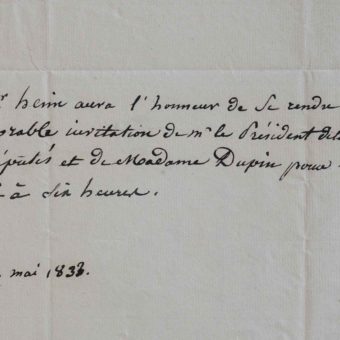 heim aura l'honneur de se rendre
orable invitation de mr le Président de la
éputés et de Madame Dupin pour
à six heures.
mai 1833.